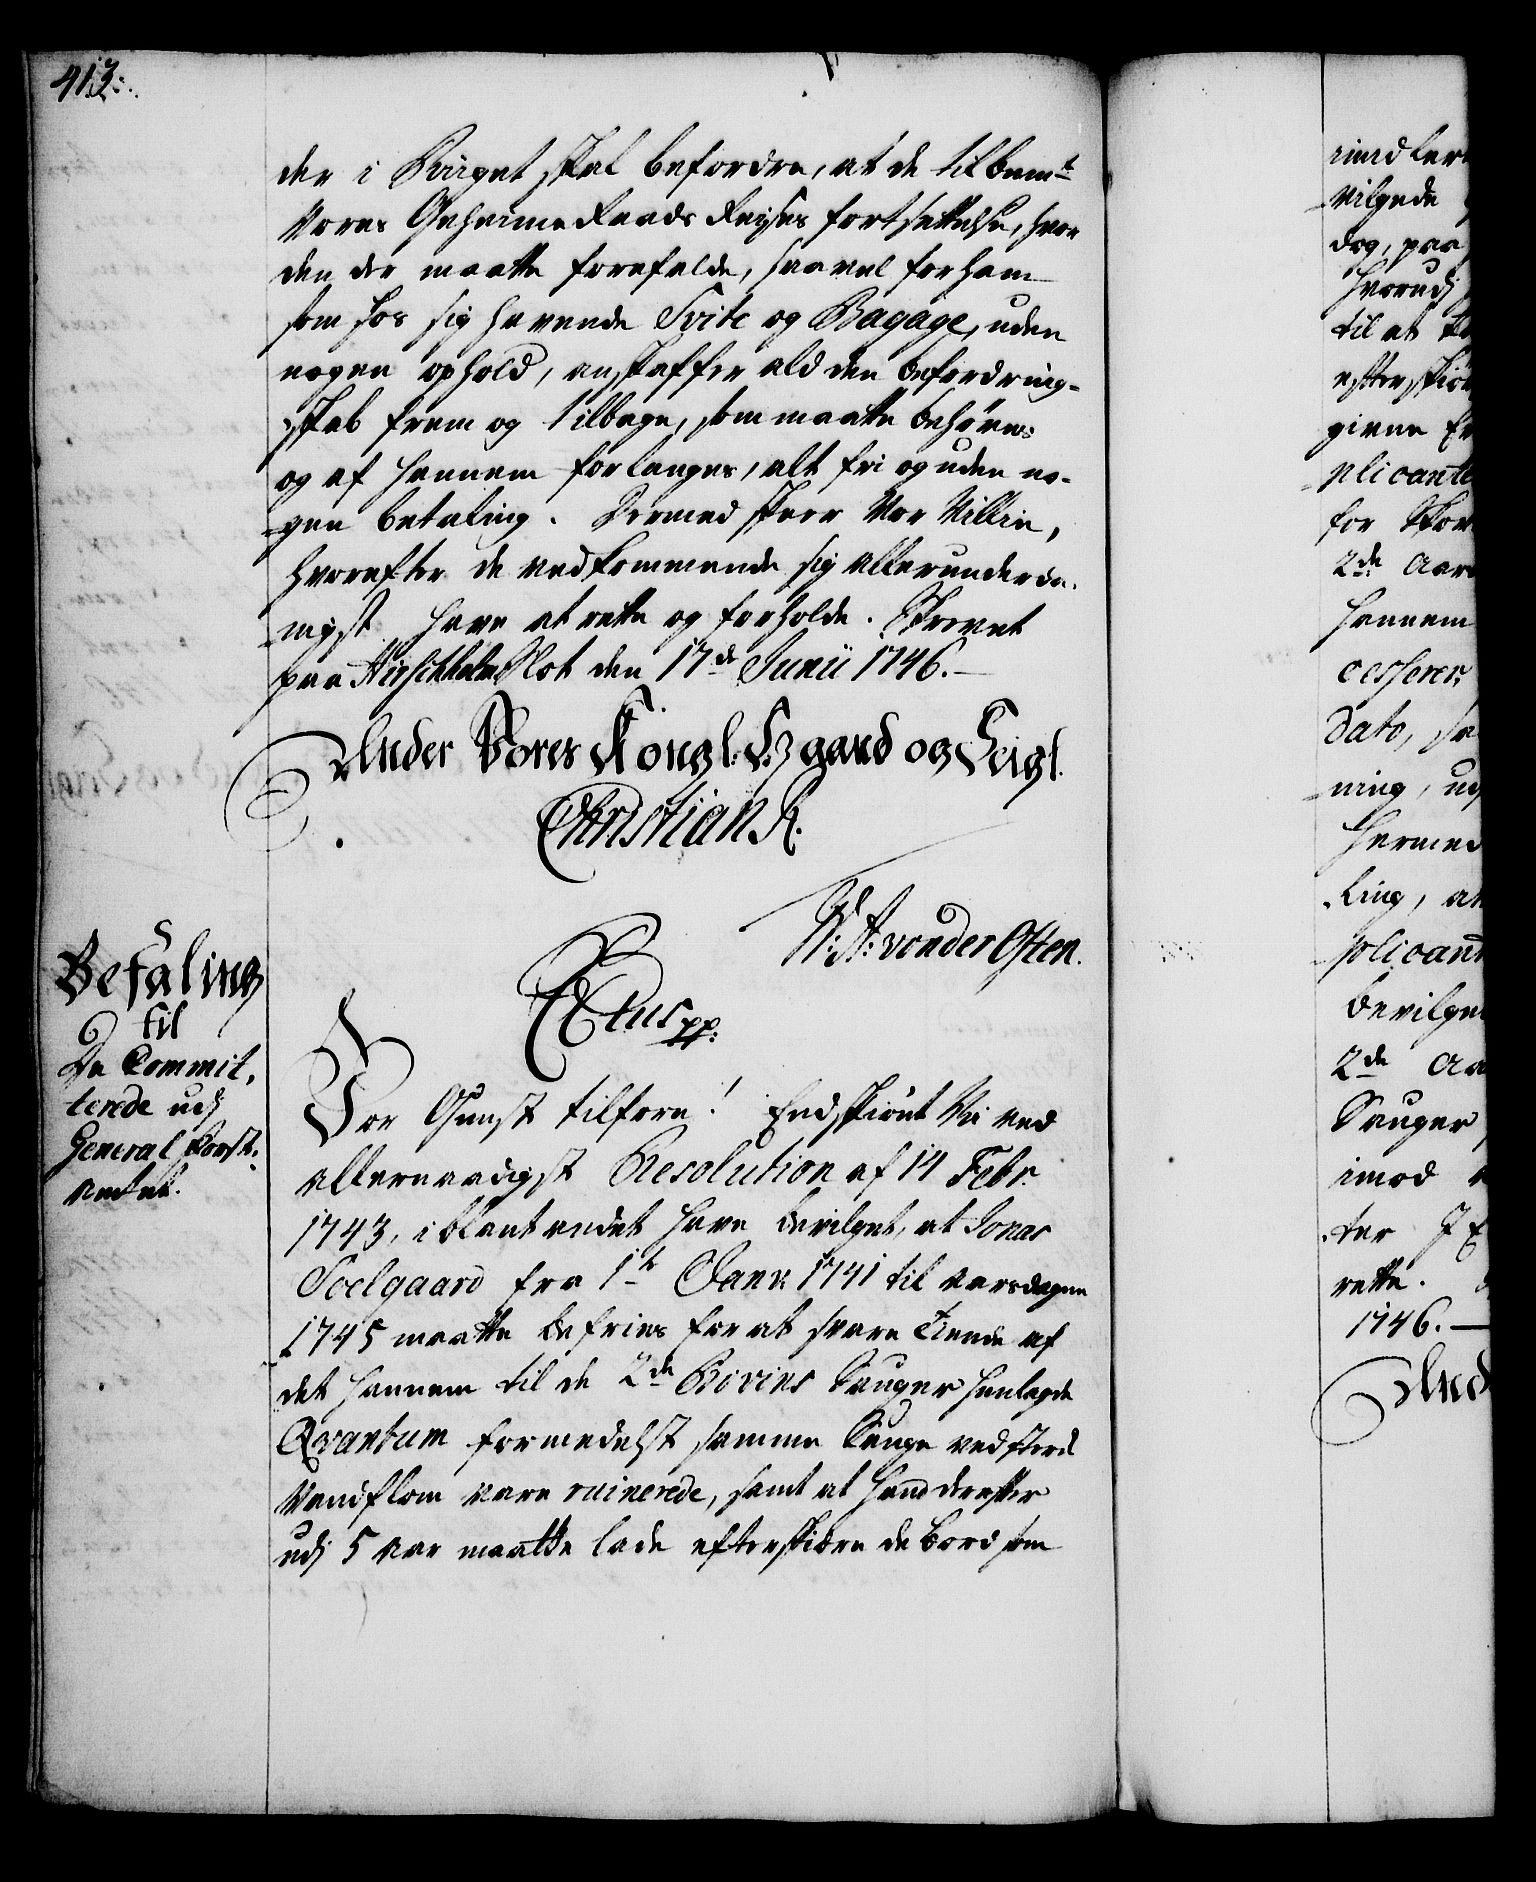 413.
der i Riiget skal befordre, at de til bemte
Vores Geheime Raads Reyses fortsettelse, hvor
den der maatte forefalde, saavel for ham
som hos sig havende Svite og Bagage, uden
nogen ophold, anskaffer ald den befordring-
skab frem og tilbage, som maatte behøves
og af hannem forlanges, alt fri og uden no-
gen betaling. Dermed skeer Vor Villie,
hvorefter de vedkommende sig allerunderda-
nigst have at rette og forholde. Skrevet
paa Hirschholm Slot den 17de Junii 1746.
Under Vores Kongl: Haand og Seigl.
Christian R.
V: A: von der Osten.
Befaling
til
De Committerede
terede udj
General Forst-
Amtet.
Ctus pp:
Vor Gunst tilforn! Endskiønt Vi ved
allernaadigst Resolution af 14 Febr:
1743, iblant andet have bevilget, at Jonas
Soelgaard fra 1te Janv: 1741 til aarsdagen
1745 maatte befries for at svare Tiende af
det hannem til de 2de Sauger henlagde
Qvantum formedelst samme Sauge ved sterk
Vandflom vare ruinerede, samt at hand derefter
udj 5 aar maatte lade efterskiere de bord som
imidler
vilgede
dog, paa
hvorudj
til at
efterskie
givne
plicante
for
2de Aar
hannem
cesserer
dato, sa
ning, ud
Hermed
ling, at
plicant
bevilge
2de Aa
Sauger
imod
ter
rette.
1746.
Und